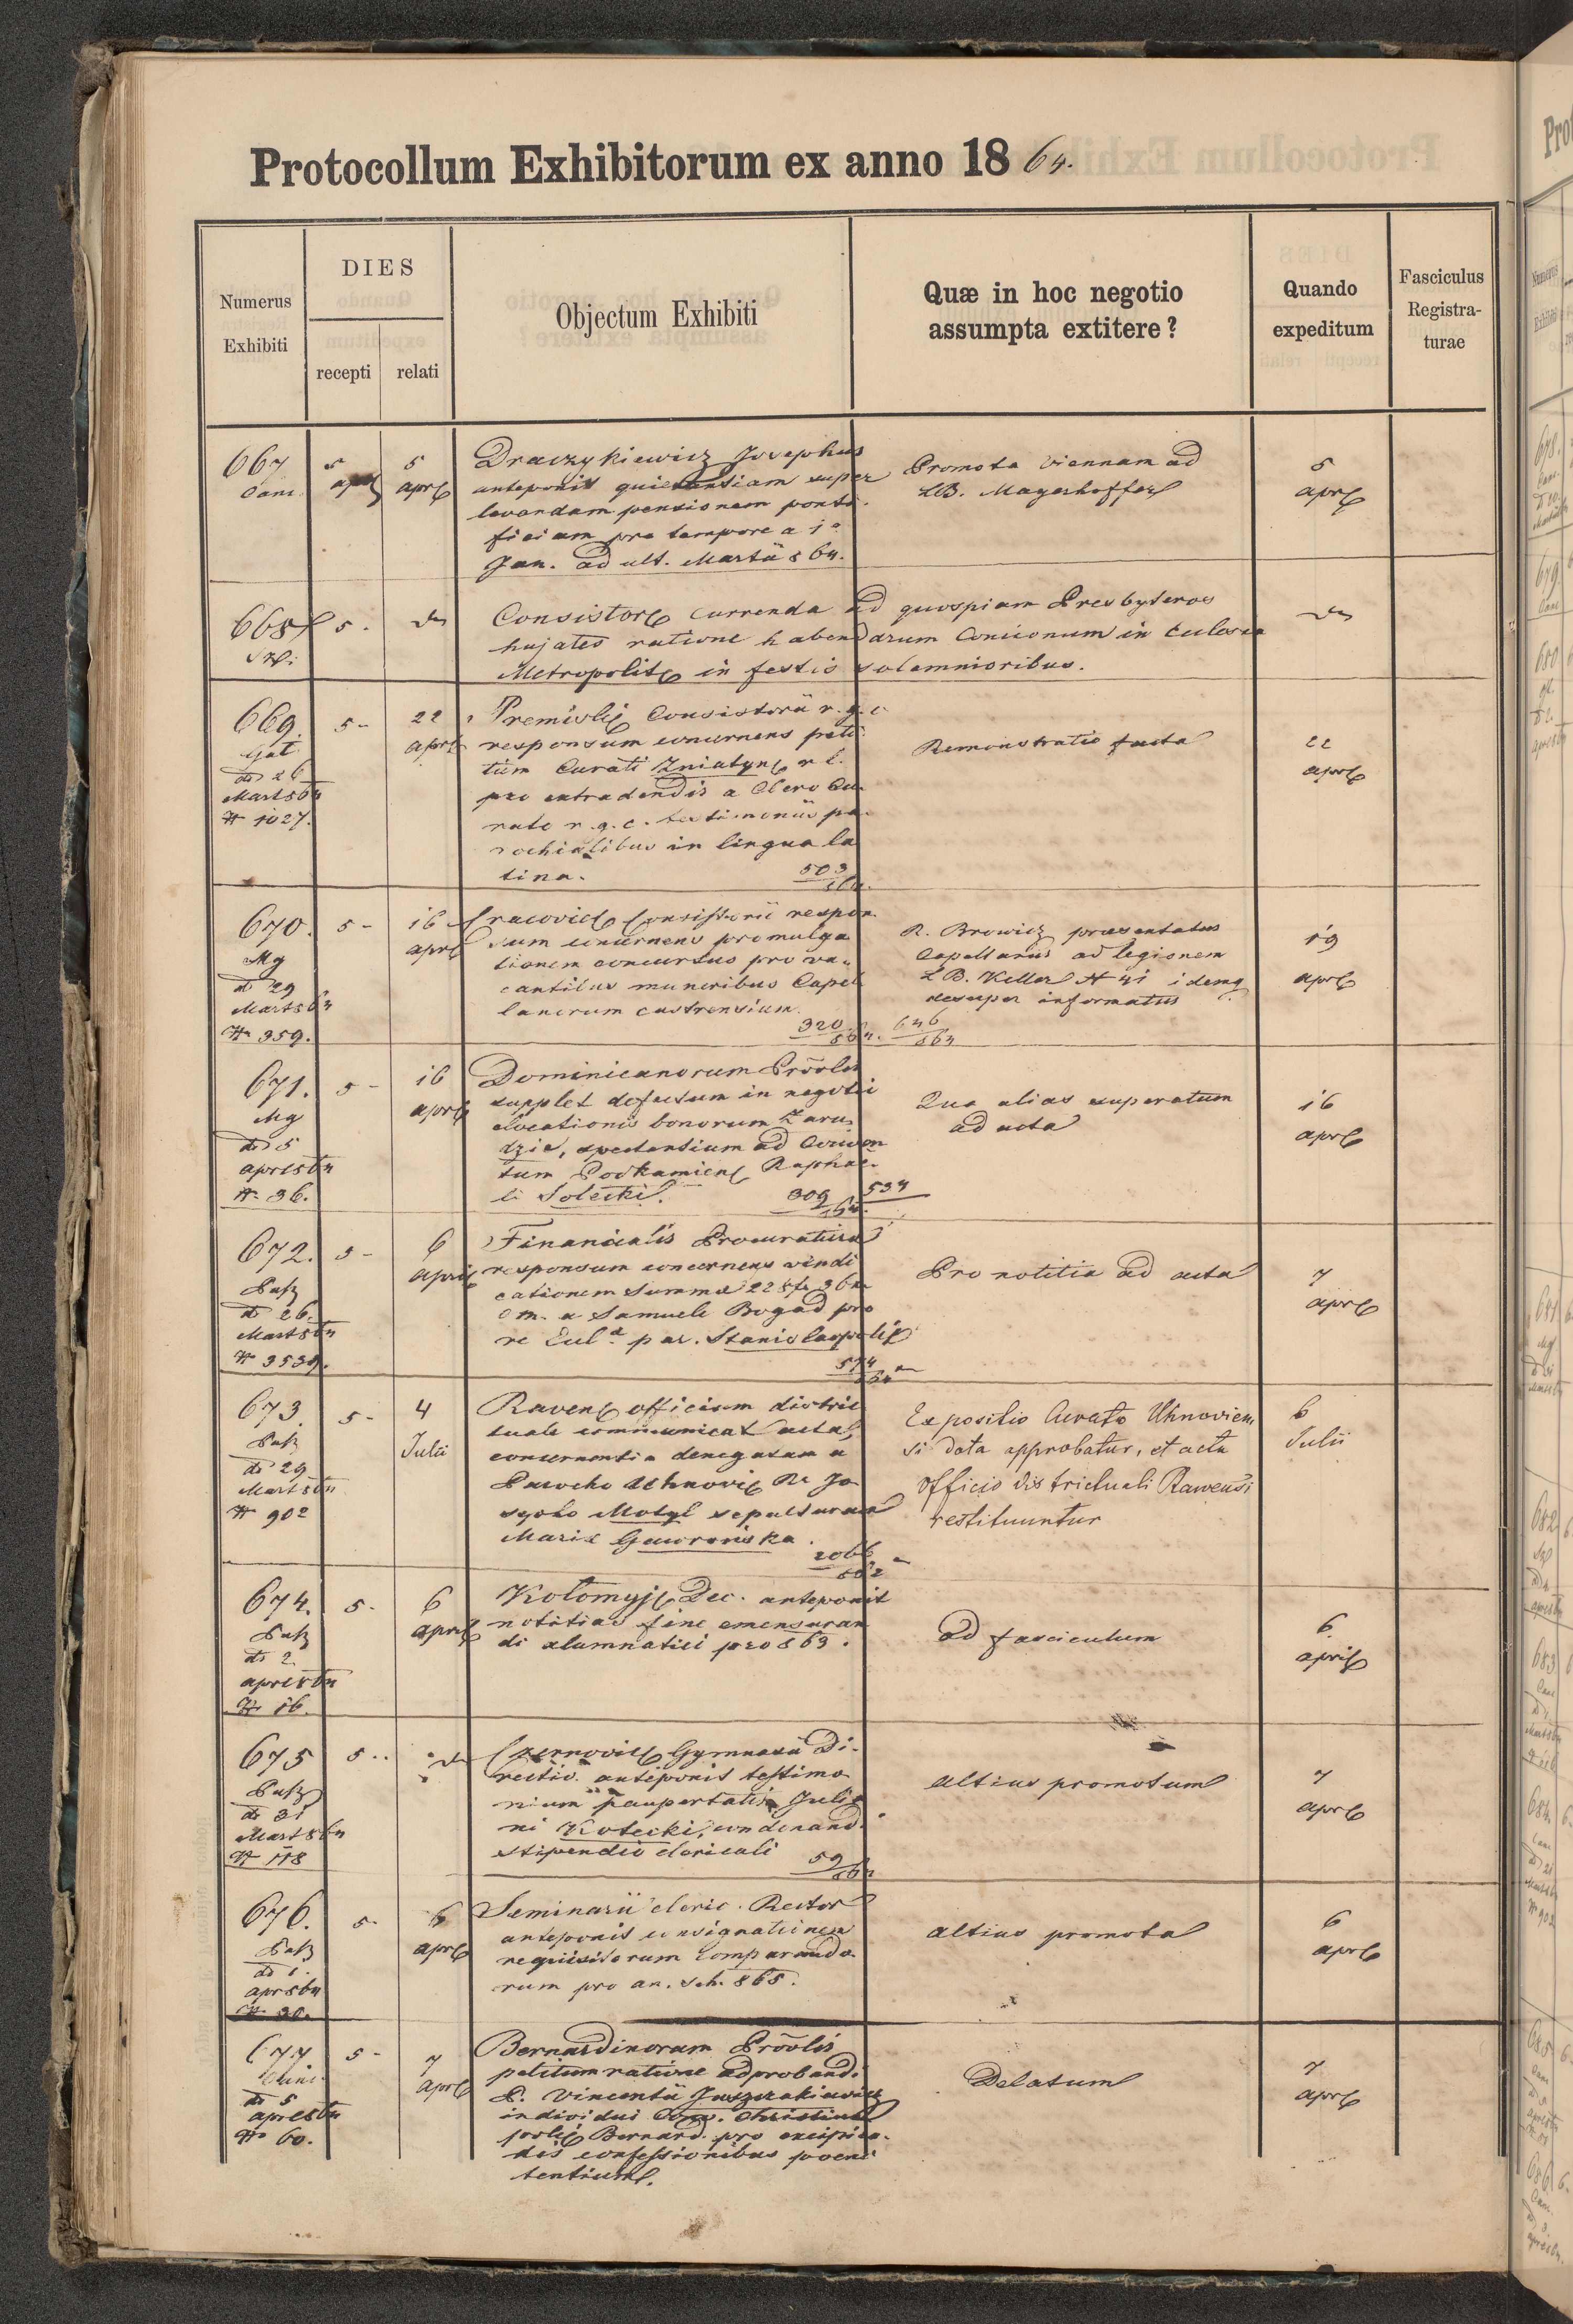 Protocollum Exhibitorum ex anno 1864.
Numerus Exhibiti
DIES
recepti
relati
Objectum Exhibiti
Quæ in hoc negotio
assumpta extitere?
Quando
expeditum
Fasciculus
Registra-
turae
667
5
5
apr
Draczykiewicz Josephus
anteponit quietantiam super
levandam pensionem ponti-
ficiam pro tempore a 1a
Jan. ad ult. Martii 864.
Promota Viennam ad
LB. Mayerhoffer
5
apr
668
5.
Consistor currenda ad quospiam Presbyteros
hujates ratione habendarum Concionum in Eccles
Metropolit in festis solemnioribus.
669.
Gat
do 26
Mart 864
N 1027.
5-
22
apr
Premisli Consistorii r. g. c.
responsum concernens peti
tum Curati Zniatyn r l.
pro extradendis a Clero Cu-
rato r. g. c. testimoniis pa-
rochialibus in lingua la
tina.
503
864.
Remonstratio facta
22
apr
670.
Mg
d 29
Mart 864
N 359.
5-
16
apr
Cracovie Consistorii respon
sum concernens promulga
tionem concursus pro va-
cantibus muneribus Capel
lanorum castrensium.
320
864.
R. Browicz præsentatus
Capellanus ad legionem
LB. Keller N 41 idemq
desuper informatus
646
864
19
apr
671.
Mg
do 5
apr 864
N. 36.
5-
16
apr
Dominicanorum Prōvlis
supplet defectum in negotii
elocationis bonorum Zaru
dzie, spectantium ad Conven
tum Podkamien Raphae-
li Solecki.
309
864
534
Qua alias superatum
ad acta
16
apr
672.
do 26.
Mart 864
N 3539.
5-
6
april
Financialis Procuratura
responsum concernens vindi
cationem Summæ 228 f 36
C m. a Samuele Bogad pro
re Eccl. par. Stanislaopoli
574
864
Pro notitia ad acta
7
apr
673.
do 29
Mart 864
N 902
5-
4
Julii
Raven officium distric
tuale communicat acta,
concernentia denegatam a
Parocho Uhnovi R. Jo
sepho Motyl sepulturam
Mariæ Gawrońska.
2066
862
Expositio Curato Uhnovien
si data approbatur, et acta
officio districtuali Rawensi
restituuntur
6
Julii
674.
do 2
apr 864
N 16.
5.
6
april
Kołomyj Dec. anteponit
notitias fine emensuran
di alumnatici pro 863.
ad fasciculum
6
april
675
do 31
Mart 864
N 118
5..
Czernovic Gymnasii Di-
rectio anteponit testimo
nium paupertatis Julia
ni Kotecki, condonand.
stipendio clericali
59
864
altius promotum
7
apr
676.
do 1.
apr 864
N 30.
5.
6
apr
Seminarii cleric. Rector
anteponit consignationem
requisitorum comparando
rum pro an. sch. 865.
altius promota
6
apr
677
do 5
apr 864
No 60.
5-
7
apr
Bernardinorum Prōvlis
petitum ratione adprobandi
P. Vincentii Juszczakiewicz
individui Conv. Christino
poli Bernard. pro excipien-
dis confessionibus poeni
tentium.
Delatum
7
apr